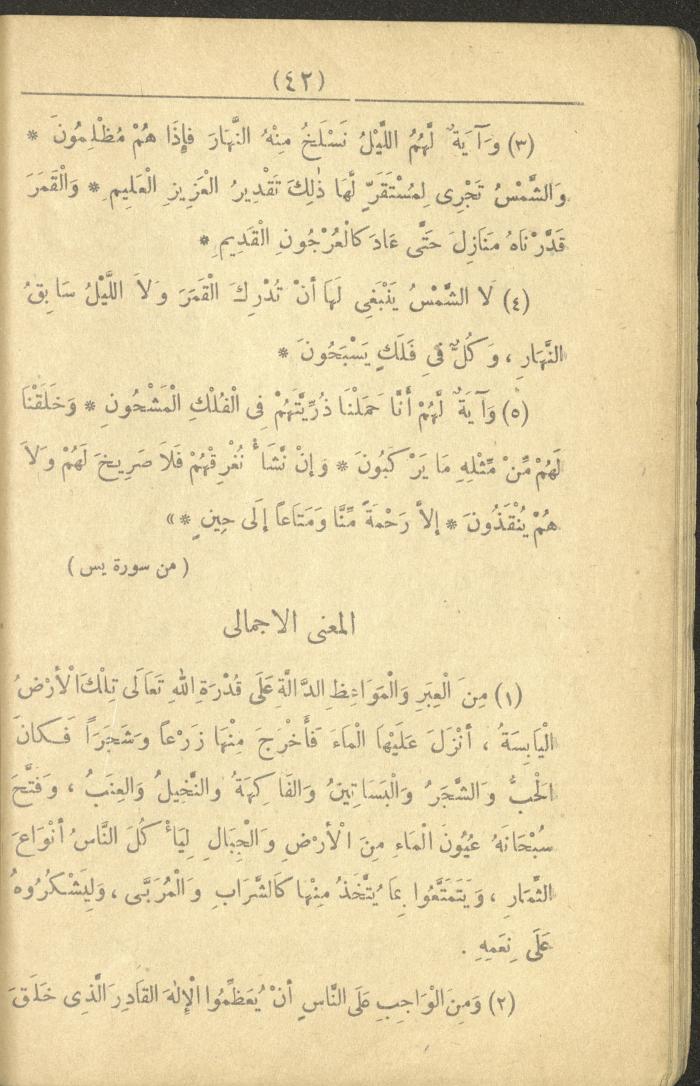 (٤٢)
(٣) وَآيَةٌ لَّهُمُ اللَّيْلُ نَسْلَخُ مِنْهُ النَّهَارَ فَإِذَا هُمْ مُظْلِمُونَ *
وَالشَّمْسُ تَجْرِى لِمُسْتَقَرٍّ لَّهَا ذٰلِكَ تَقْدِيرُ الْعَزِيزِ الْعَلِيمِ * وَالْقَمَرَ
قَدَّرْنَاهُ مَنَازِلَ حَتَّى عَادَ كَالْعُرْجُونِ الْقَدِيمِ *
(٤) لَا الشَّمْسُ يَنْبَغِى لَهَا أَنْ تُدْرِكَ الْقَمَرَ وَلاَ اللَّيْلُ سَابِقُ
النَّهَارِ ، وَكُلٌّ فِى فَلَكٍ يَسْبَحُونَ *
(٥) وَآيَةٌ لَّهُمْ أَنَّا حَمَلْنَا ذُرِّيَّتَهُمْ فِى الْفُلْكِ الْمَشْحُونِ * وَخَلَقْنَا
لَهُمْ مِّنْ مِّثْلِهِ مَا يَرْكَبُونَ * وَإِنْ نَّشَأْ نُغْرِقْهُمْ فَلاَ صَرِيخَ لَهُمْ وَلاَ
هُمْ يُنْقَذُونَ * إِلاَّ رَحْمَةً مِّنَّا وَمَتَاعاً إِلَى حِينٍ * »
( من سورة يس )
المعنى الاجمالى
(١) مِنَ الْعِبَرِ وَالْمَوَاعِظِ الدَّالَّةِ عَلَى قُدْرَةِ اللهِ تَعَالَى تِلْكَ الْأَرْضُ
الْيَابِسَةُ ، أَنْزَلَ عَلَيْهَا الْمَاءَ فَأَخْرَجَ مِنْهَا زَرْعاً وَشَجَراً فَكَانَ
الْحَبُّ وَالشَّجَرُ وَالْبَسَاتِينُ وَالفَاكِهَةُ والنَّخِيلُ وَالعِنَبُ ، وَفَتَّحَ
سُبْحَانَهُ عُيُونَ الْمَاءِ مِنَ الْأَرْضِ وَالْجِبَالِ لِيَأْكُلَ النَّاسُ أَنْوَاعَ
الثِّمَارِ ، وَيَتَمَتَّعُوا بِمَا يُتَّخَذُ مِنْهَا كَالشَّرَابِ وَالْمُرَبَّى ، وَلِيَشْكُرُوهُ
عَلَى نِعَمِهِ .
(٢) وَمِنَ الْوَاجِبِ عَلَى النَّاسِ أَنْ يُعَظِّمُوا الْإِلهَ القَادِرَ الَّذِى خَلَقَ